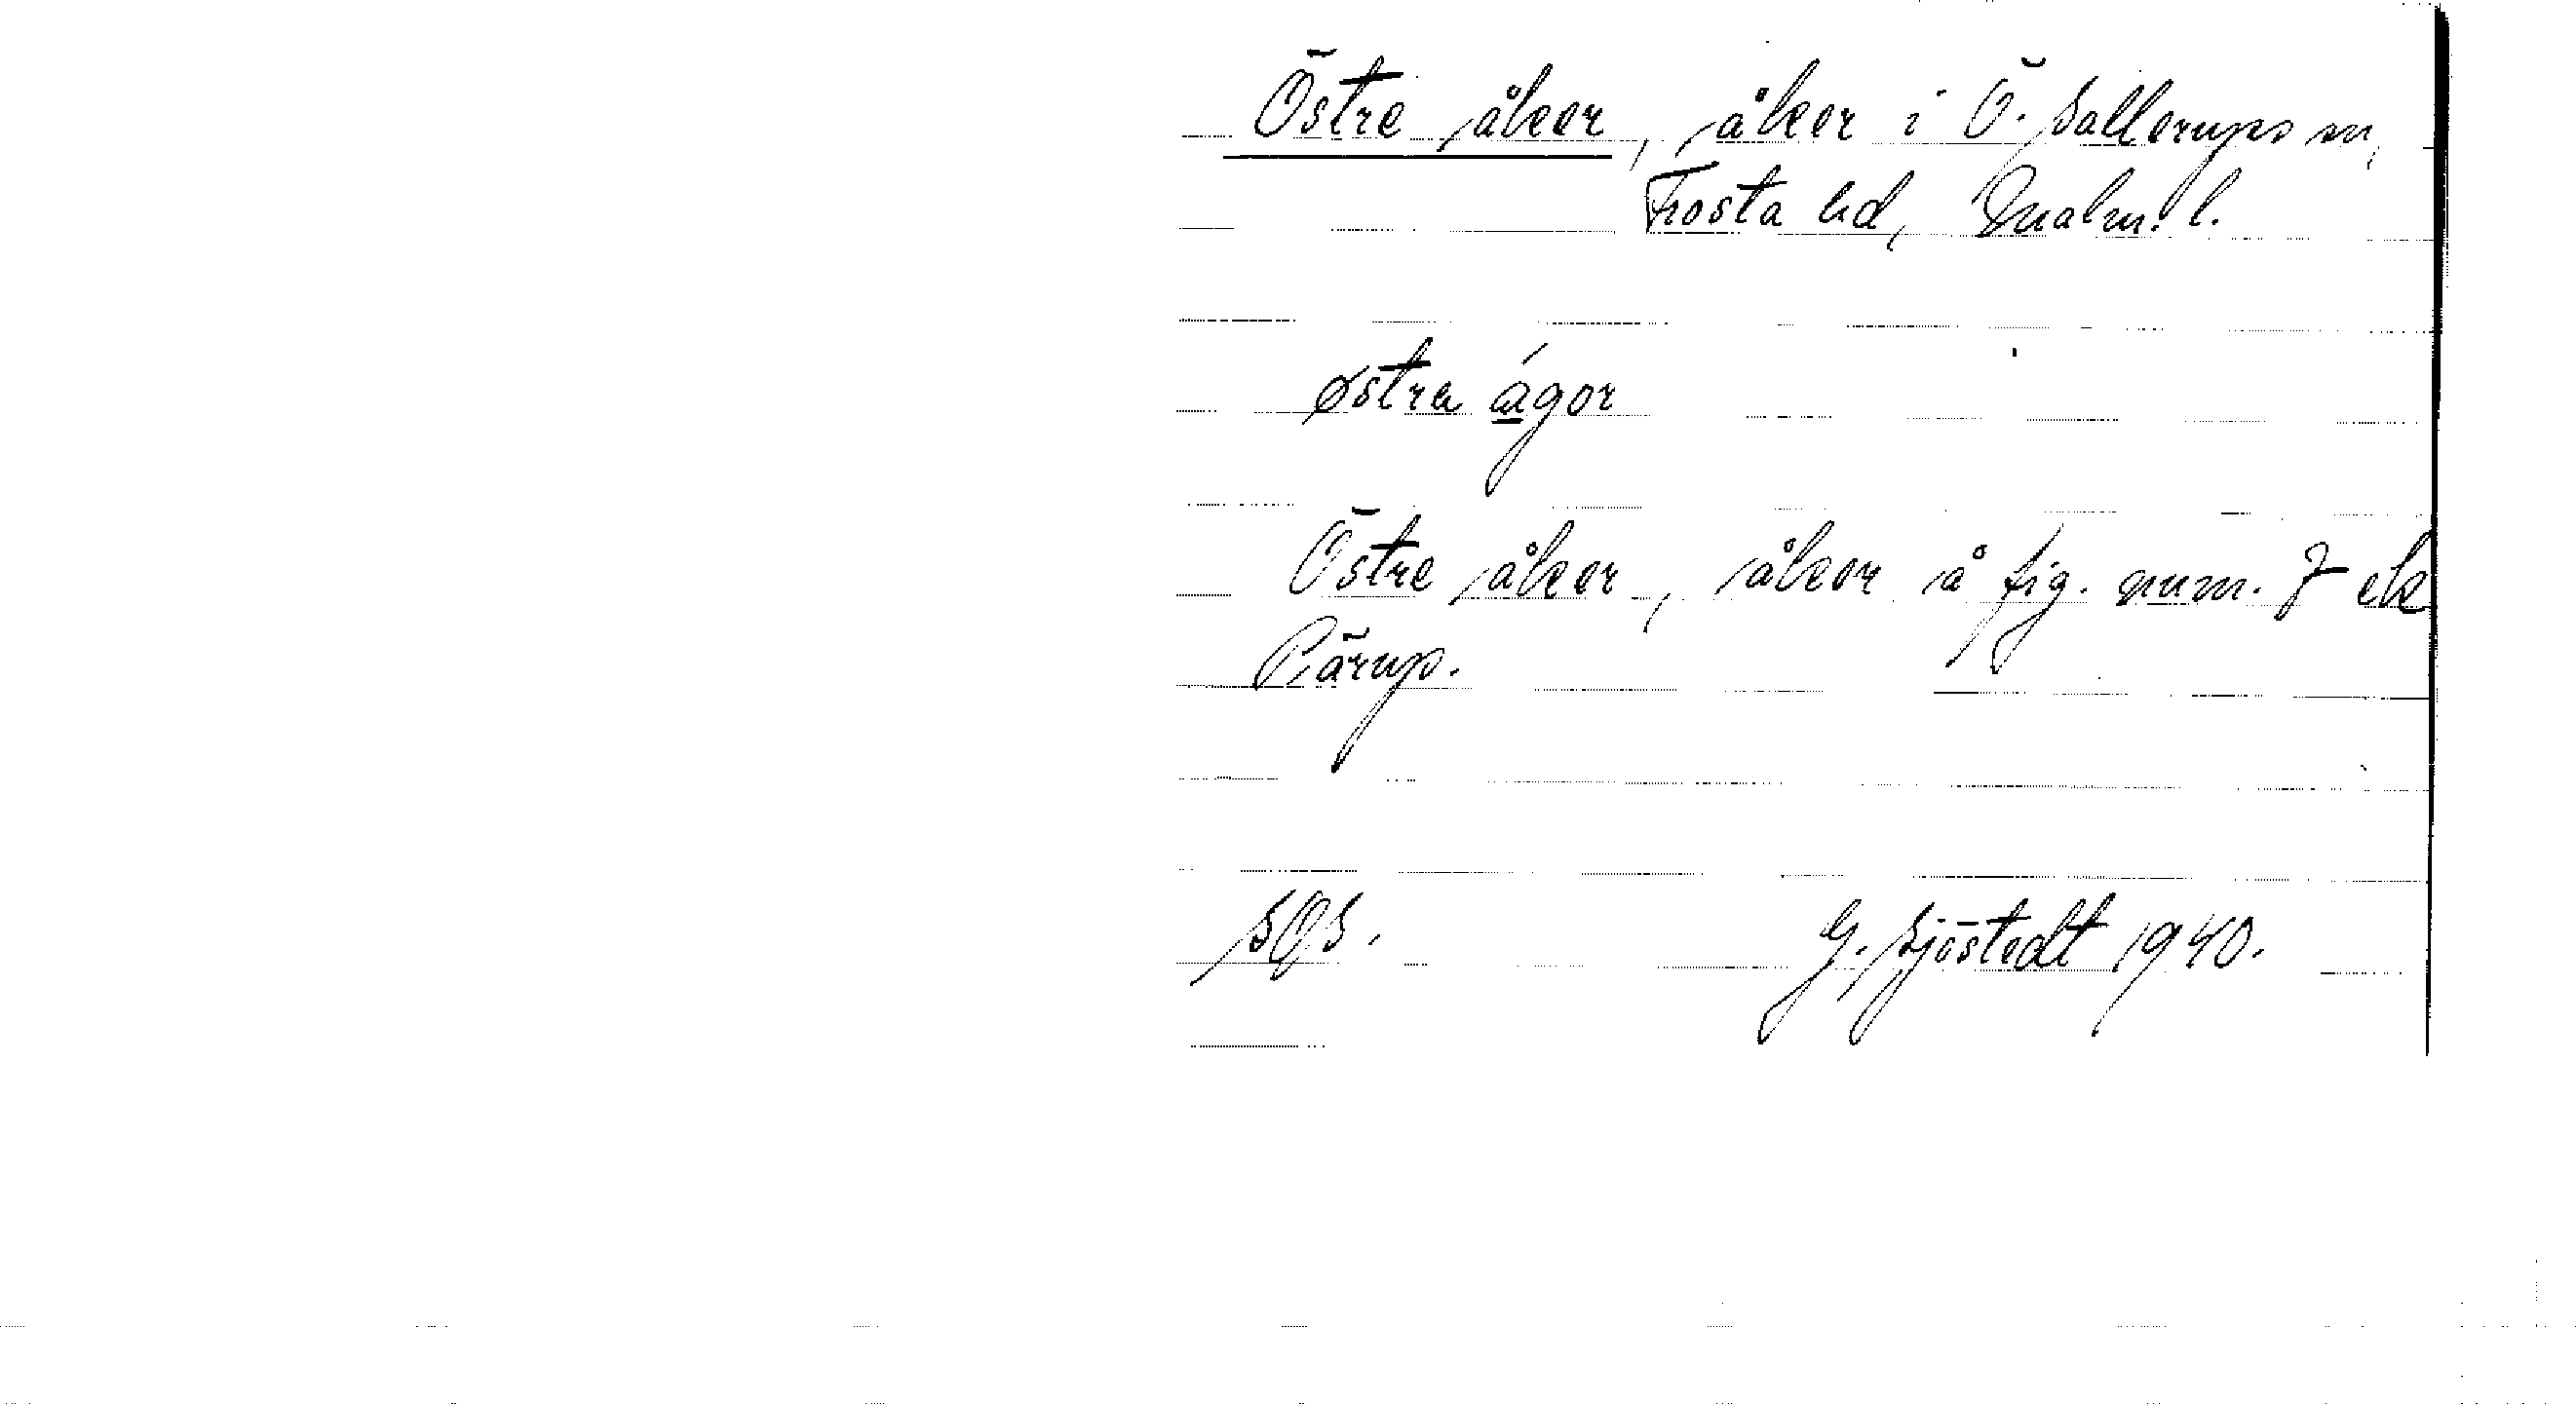 Östre åker, åker i Ö. Sallerups sn,
Frosta hd, Malm. l.
østra ágor
Östre åker, åker å fig. num. 7 ek
Pärup.
SOS. G. Sjöstedt 1940.